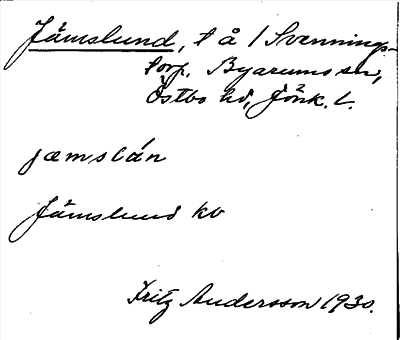 Jämslund, t å / Svennings-
torp. Byarums sn,
Östbo hd, Jönk. l.
jæmslán
Jämslund kb
Fritz Andersson 1930.